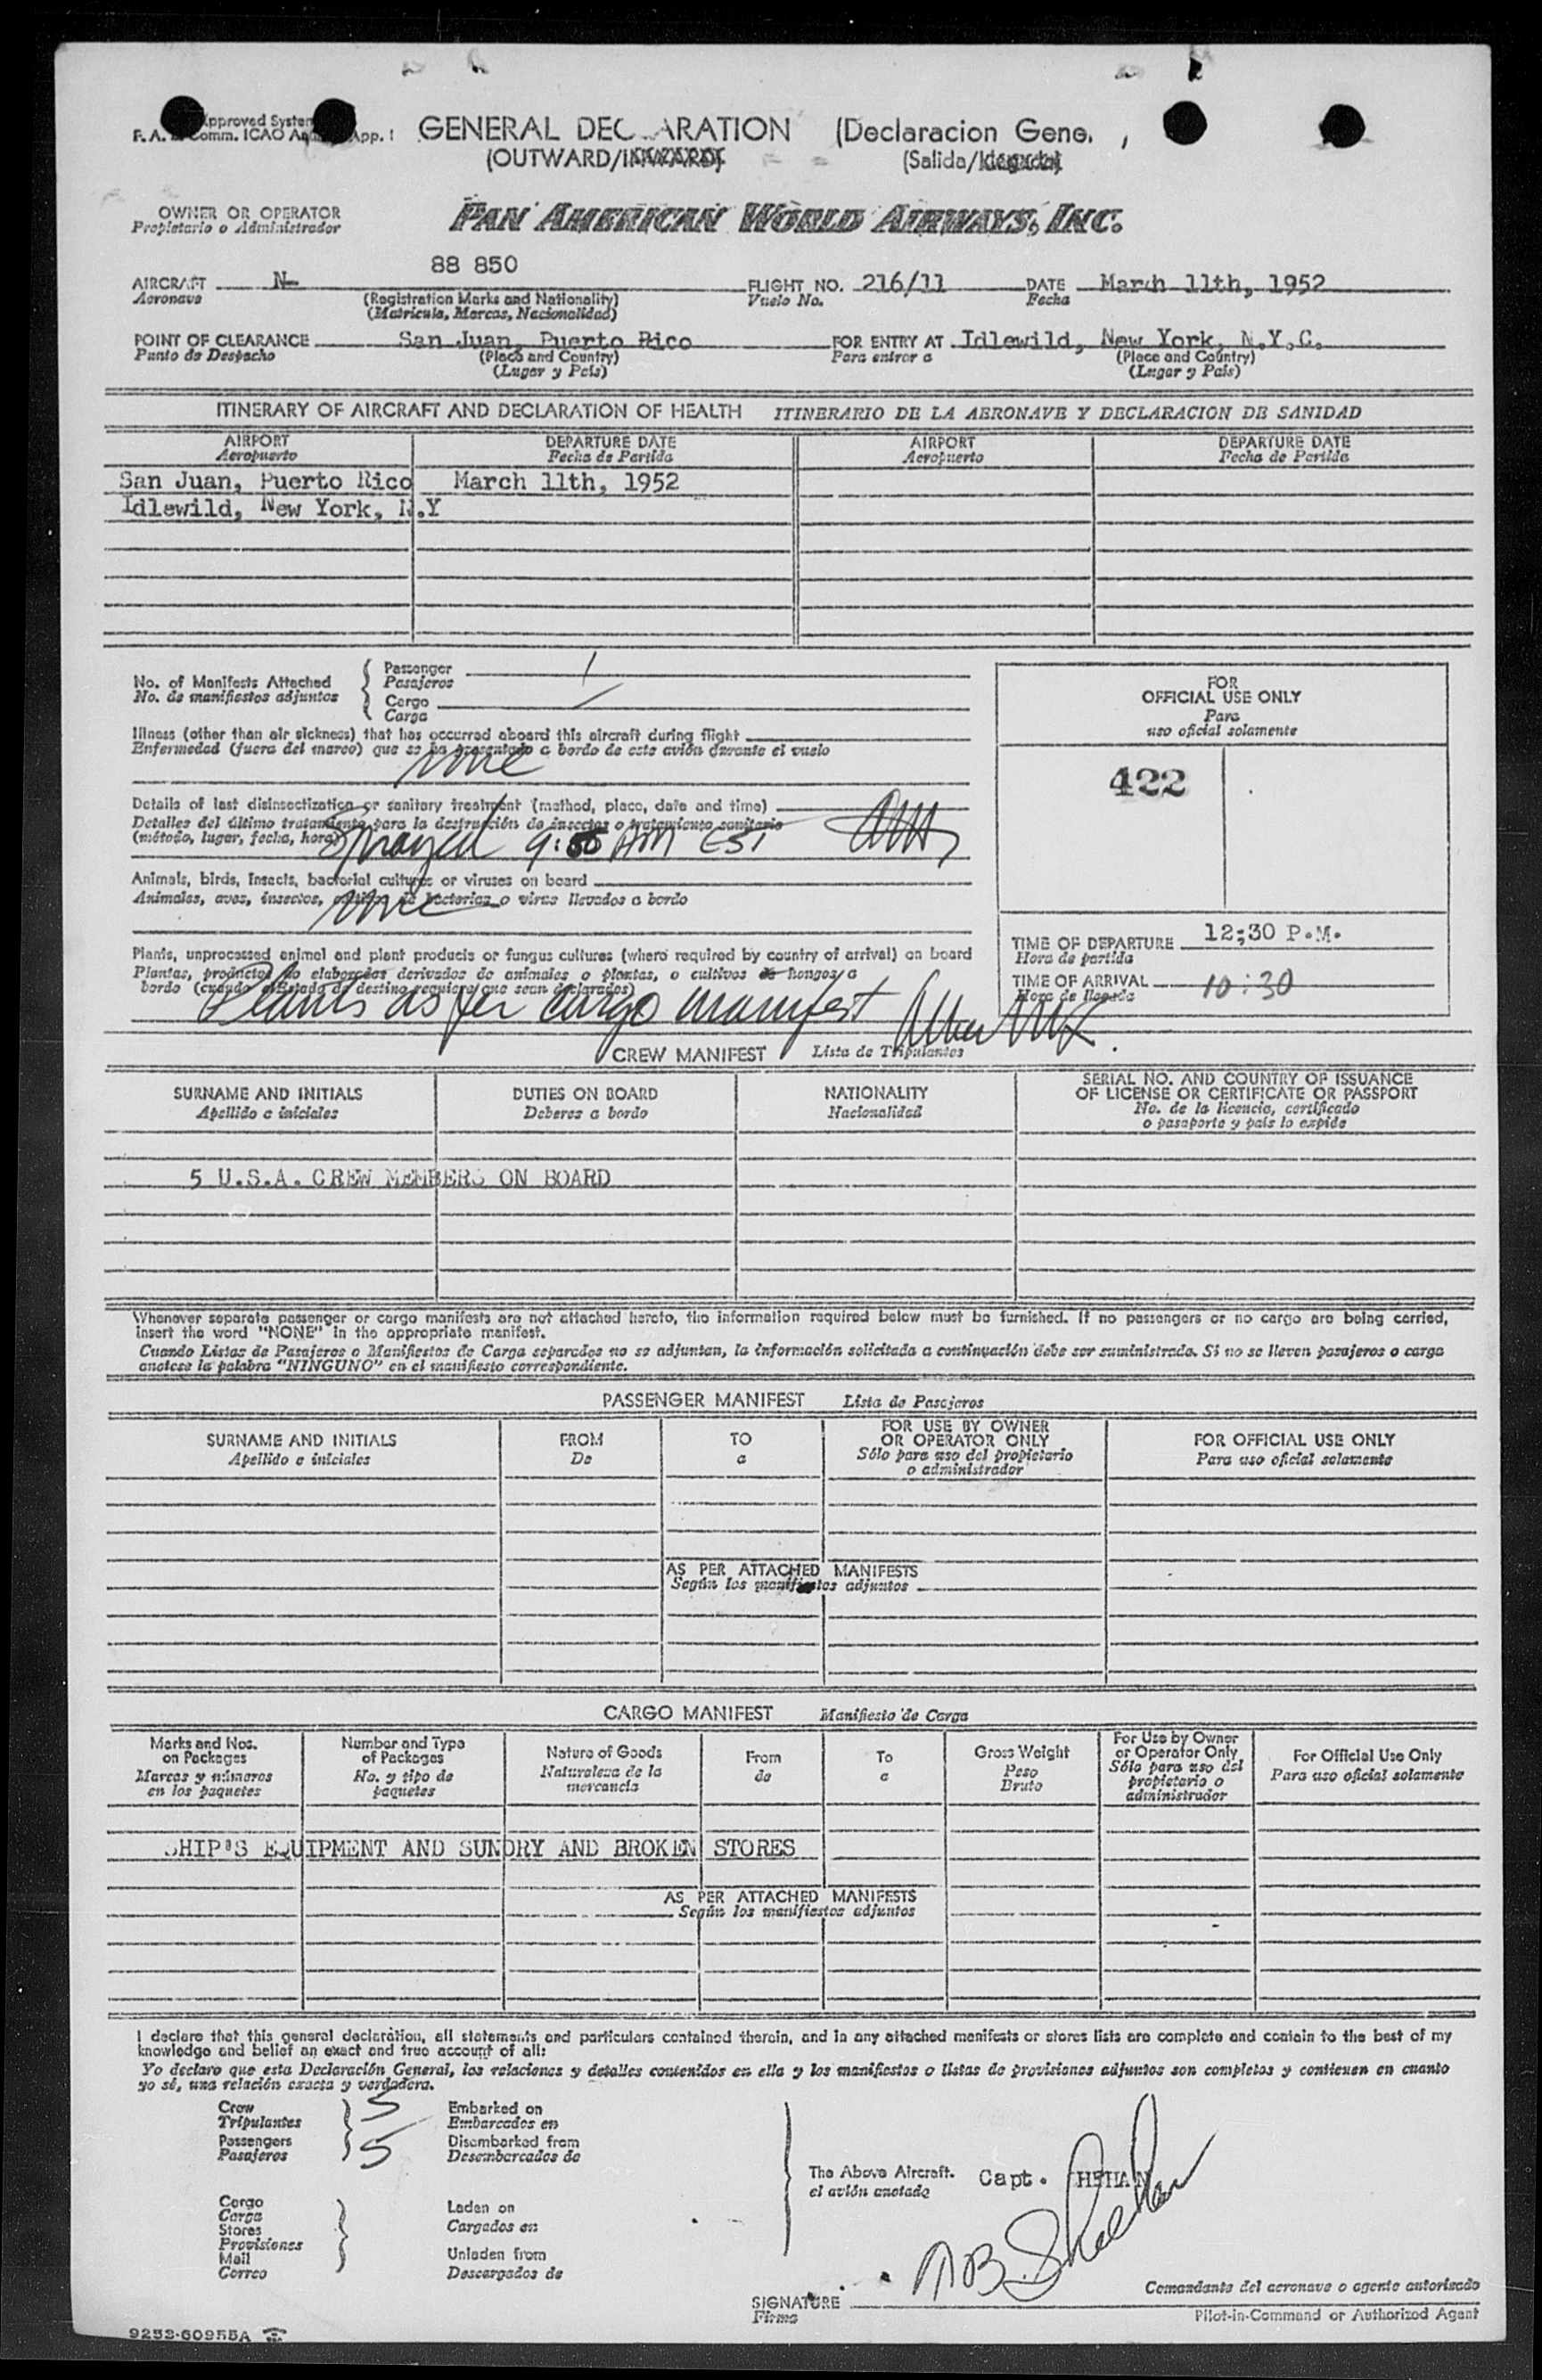 Approved System
F.A. Comm. ICAO App. I
GENERAL DEC ARATION (Declaracion Gene.
(OUTWARD/INWARD) (Salida/llegada)
OWNER OR OPERATOR
Propietario o Administrador
PAN AMERICAN WORLD AIRWAYS, INC.
88 850
AIRCRAFT N- FLIGHT NO. 216/11 DATE March 11th, 1952
Aeronave (Registration Marks and Nationality) Vuelo No. Fecha
(Matricula, Marcas, Nacionalidad)
POINT OF CLEARANCE San Juan, Puerto Rico FOR ENTRY AT Idlewild, New York, N.Y.C.
Punto de Despacho (Place and Country) Para entrar a (Place and Country)
(Lugar y Pais) (Lugar y Pais)
ITINERARY OF AIRCRAFT AND DECLARATION OF HEALTH ITINERARIO DE LA AERONAVE Y DECLARACION DE SANIDAD
AIRPORT DEPARTURE DATE AIRPORT DEPARTURE DATE
Aeropuerto Fecha de Partida Aeropuerto Fecha de Partida
San Juan, Puerto Rico March 11th, 1952
Idlewild, New York, N.Y
No. of Manifests Attached
No. de manifiestos adjuntos
Passenger 1
Pasajeros
Cargo
Carga
FOR
OFFICIAL USE ONLY
Para
uso oficial solamente
422
Illness (other than air sickness) that has occurred aboard this aircraft during flight
Enfermedad (fuera del mareo) que se ha presentado a bordo de este avión durante el vuelo
none
Details of last disinsectization or sanitary treatment (method, place, date and time)
Detalles del último tratamiento para la destrucción de insectos o tratamiento sanitario
(método, lugar, fecha, hora)
Sprayed 9:55 AM EST
Animals, birds, insects, bacterial cultures or viruses on board
Animales, aves, insectos, cultivos de bacterias o virus llevados a bordo
none
Plants, unprocessed animal and plant products or fungus cultures (where required by country of arrival) on board
Plantas, productos no elaborados derivados de animales o plantas, o cultivos de hongos a
bordo (cuando el Estado de destino requiera que sean declarados)
Plants as per cargo manifest
TIME OF DEPARTURE 12:30 P.M.
Hora de partida
TIME OF ARRIVAL 10:30
Hora de llegada
CREW MANIFEST Lista de Tripulantes
SURNAME AND INITIALS DUTIES ON BOARD NATIONALITY SERIAL NO. AND COUNTRY OF ISSUANCE
OF LICENSE OR CERTIFICATE OR PASSPORT
Apellido e iniciales Deberes a bordo Nacionalidad No. de la licencia, certificado
o pasaporte y pais lo expide
5 U.S.A. CREW MEMBERS ON BOARD
Whenever separate passenger or cargo manifests are not attached hereto, the information required below must be furnished. If no passengers or no cargo are being carried,
insert the word "NONE" in the appropriate manifest.
Cuando Listas de Pasajeros o Manifiestos de Carga separados no se adjuntan, la información solicitada a continuación debe ser suministrada. Si no se lleven pasajeros o carga
anotese la palabra "NINGUNO" en el manifiesto correspondiente.
PASSENGER MANIFEST Lista de Pasajeros
SURNAME AND INITIALS FROM TO FOR USE BY OWNER
OR OPERATOR ONLY FOR OFFICIAL USE ONLY
Apellido e iniciales De a Sólo para uso del propietario
o administrador Para uso oficial solamente
AS PER ATTACHED MANIFESTS
Según los manifiestos adjuntos
CARGO MANIFEST Manifiesto de Carga
Marks and Nos.
on Packages
Marcas y números
en los paquetes
Number and Type
of Packages
No. y tipo de
paquetes
Nature of Goods
Naturaleza de la
mercancía
From
de
To
a
Gross Weight
Peso
Bruto
For Use by Owner
or Operator Only
Sólo para uso del
propietario o
administrador
For Official Use Only
Para uso oficial solamente
SHIP'S EQUIPMENT AND SUNDRY AND BROKEN STORES
AS PER ATTACHED MANIFESTS
Según los manifiestos adjuntos
I declare that this general declaration, all statements and particulars contained therein, and in any attached manifests or stores lists are complete and contain to the best of my
knowledge and belief an exact and true account of all:
Yo declaro que esta Declaración General, las relaciones y detalles contenidos en ella y los manifiestos o listas de provisiones adjuntos son completos y contienen en cuanto
yo sé, una relación exacta y verdadera.
Crew 5 Embarked on
Tripulantes Embarcados en
Passengers 5 Disembarked from
Pasajeros Desembarcados de
The Above Aircraft.
el avión anotado
Capt.
Cargo
Carga
Stores
Provisiones
Mail
Correo
Laden on
Cargados en
Unladen from
Descargados de
SIGNATURE
Firma
Comandante del aeronave o agente autorizado
Pilot-in-Command or Authorized Agent
9253-60955A